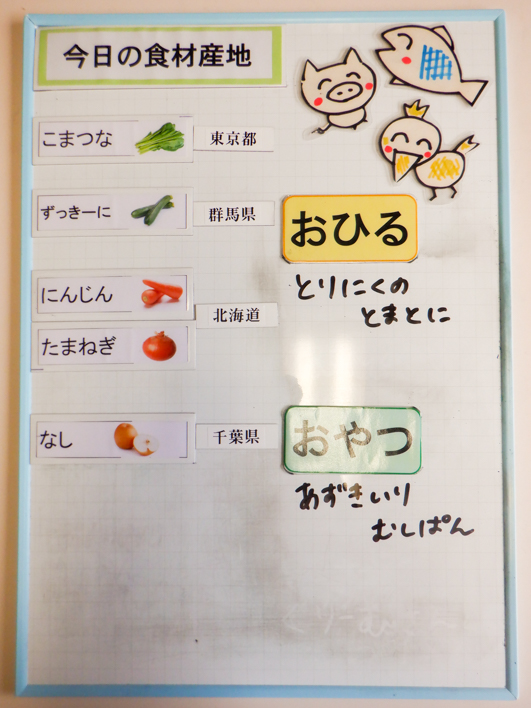 今日の食材産地
こまつな 東京都
ずっきーに 群馬県
にんじん
北海道
たまねぎ
なし 千葉県
おひる
とりにくの
とまとに
おやつ
あずきいり
むしぱん